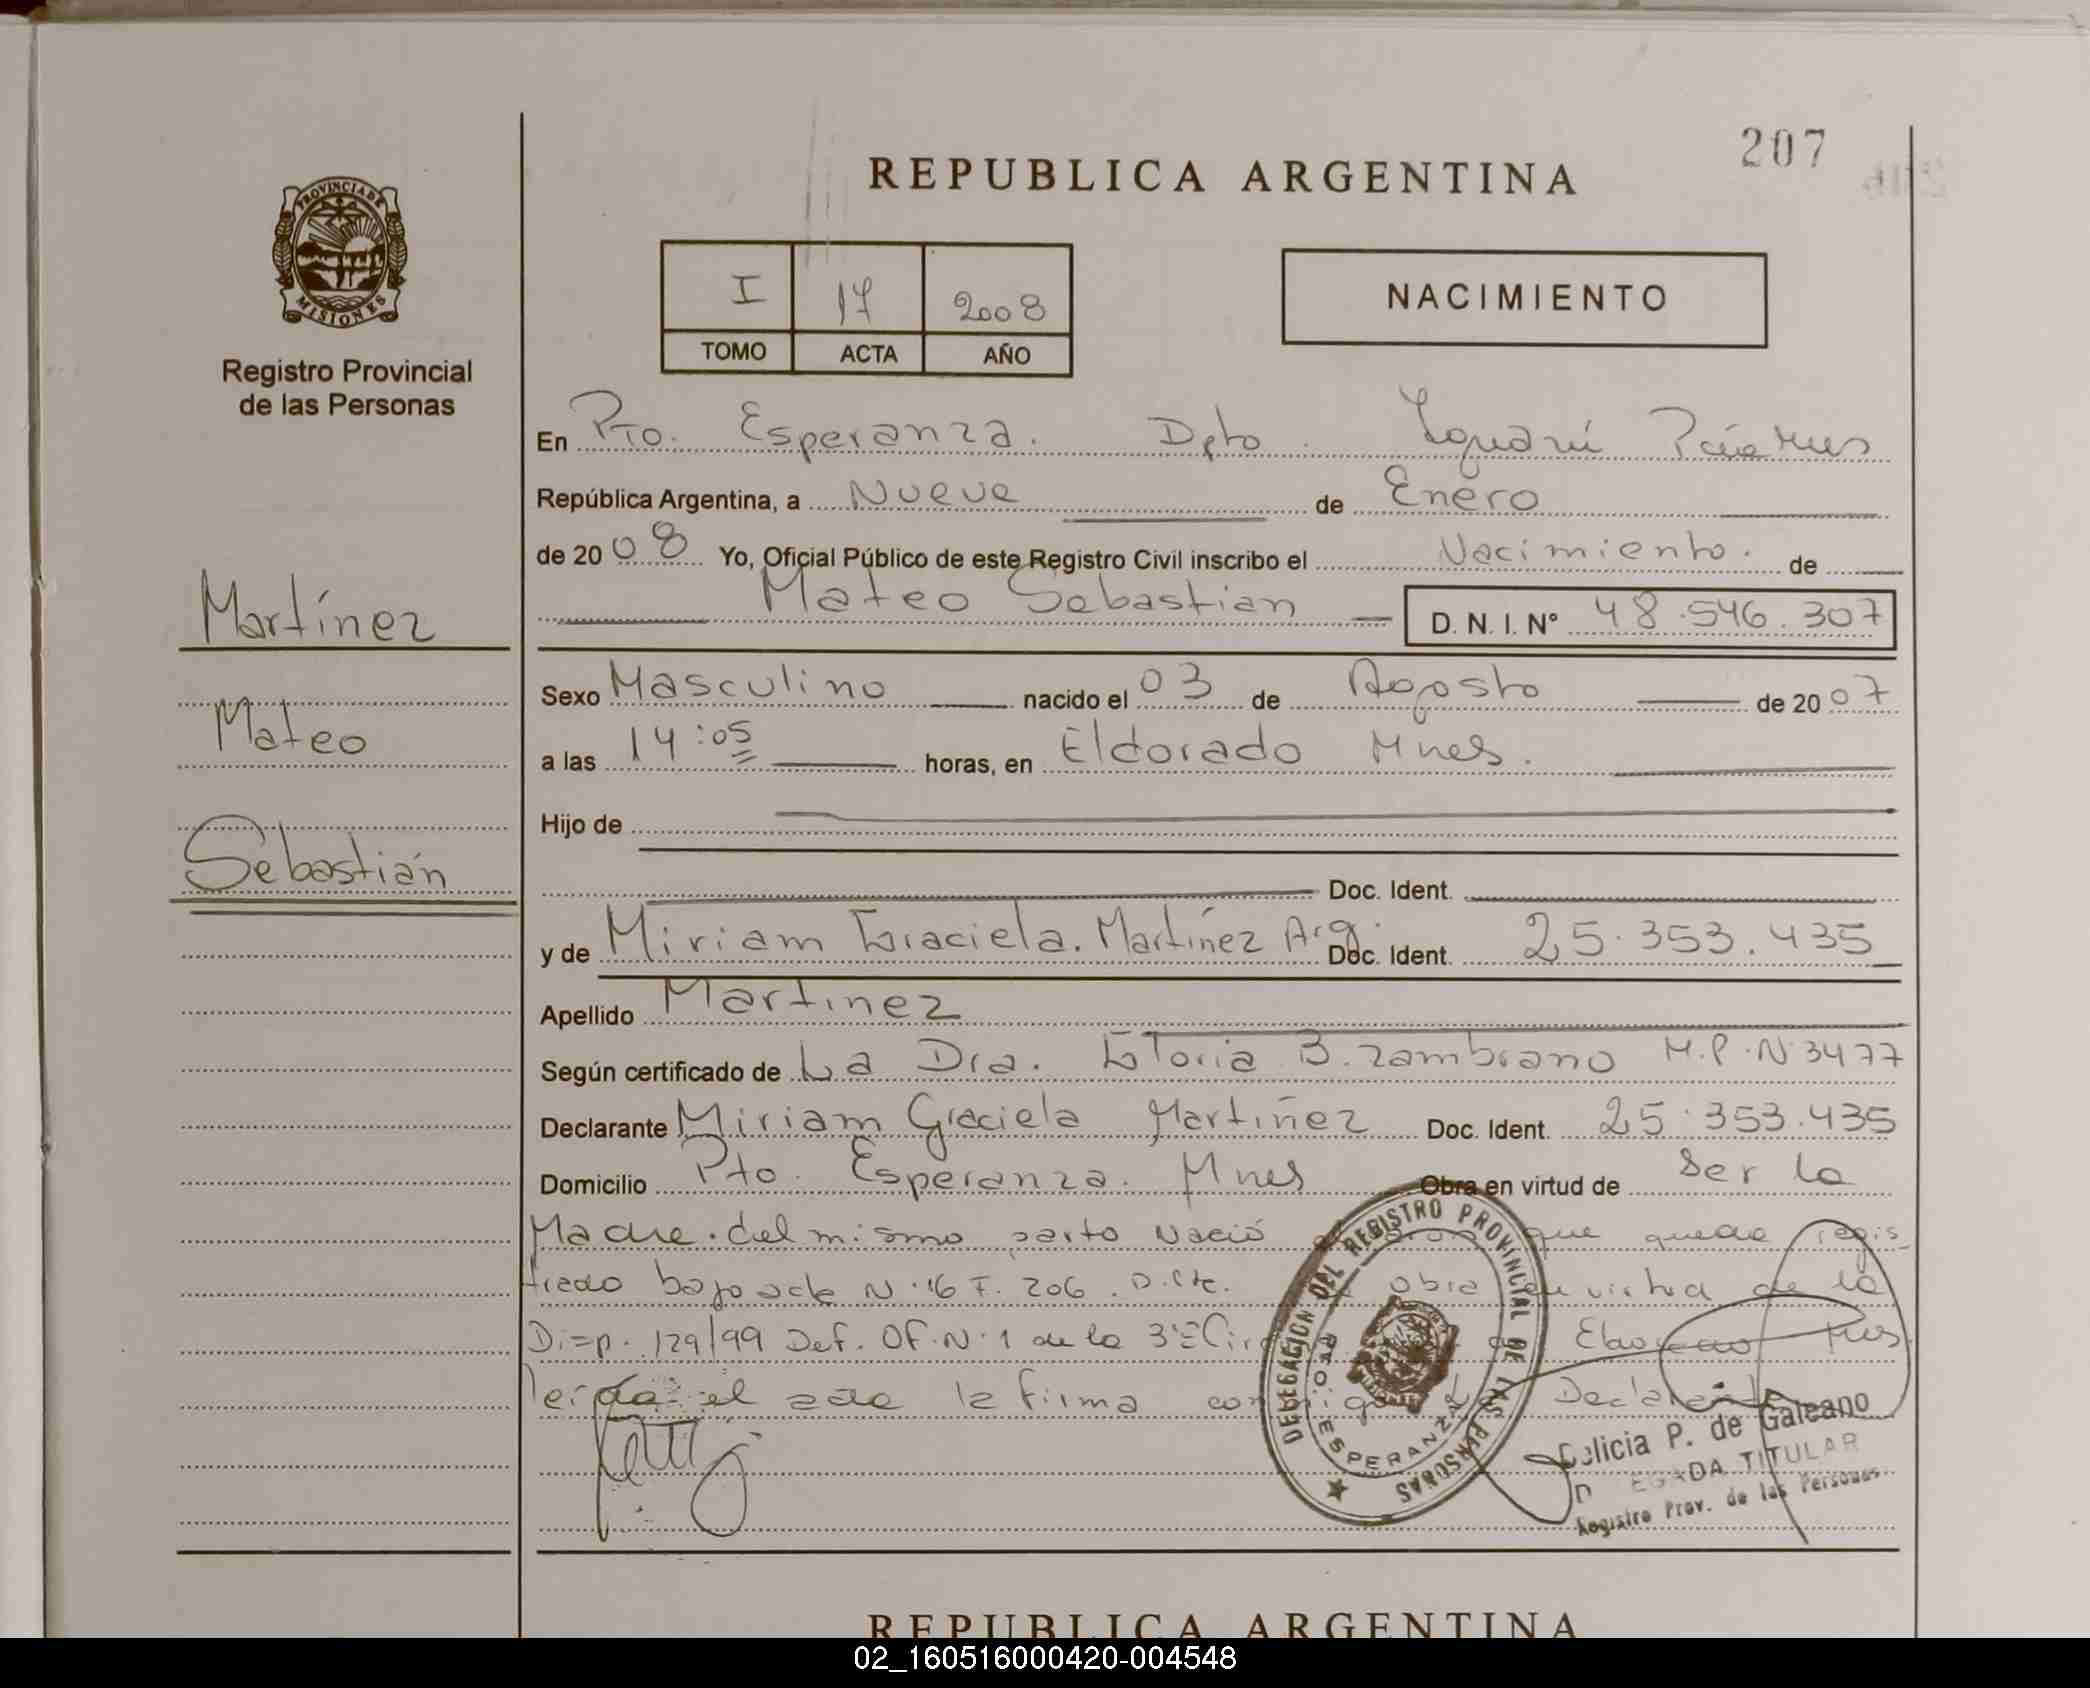 207
REPUBLICA ARGENTINA
PROVINCIA DE MISIONES
Registro Provincial
de las Personas
I 17 2008
TOMO ACTA AÑO
NACIMIENTO
En Pto. Esperanza. Dpto. Iguazú
República Argentina, a Nueve de Enero
de 2008 Yo, Oficial Público de este Registro Civil inscribo el Nacimiento. de
Mateo Sebastian D. N. I. N° 48.546.307
Martínez
Mateo
Sebastián
Sexo Masculino nacido el 03 de Agosto de 2007
a las 14:05 horas, en Eldorado Mnes.
Hijo de
Doc. Ident.
y de Miriam Graciela. Martínez Arg. Doc. Ident. 25.353.435
Apellido Martinez
Según certificado de La Dra. Gloria B. Zambrano M.P.N°3477
Declarante Miriam Graciela Martinez Doc. Ident. 25.353.435
Domicilio Pto. Esperanza. Mnes Obra en virtud de Ser la
Madre. del mismo parto Nació que queda regis
trado bajo acta N°16 F. 206. D.Pte. obra en virtud de la
Disp. 129/99 Def. Of. N°1 de la 3° Eldorado Mnes
leída el acta la firma Declarante
DELEGACION DEL REGISTRO PROVINCIAL DE LAS PERSONAS
PTO. ESPERANZA
Delicia P. de Galeano
DELEGADA TITULAR
Registro Prov. de las Personas
REPUBLICA ARGENTINA
02_160516000420-004548